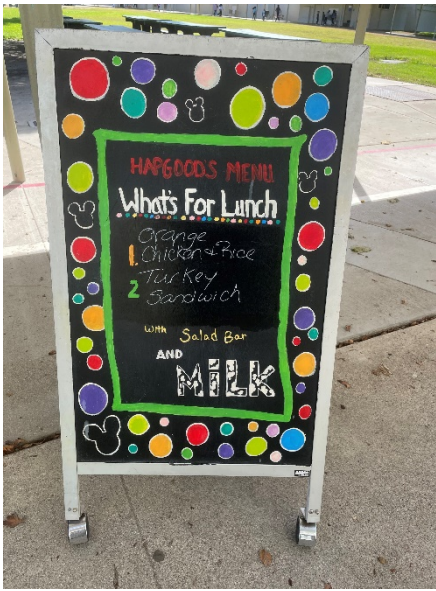 HAPGOODS MENU
What's For Lunch
Orange
1. Chicken & Rice
Turkey
2 Sandwich
with Salad Bar
AND
MiLK